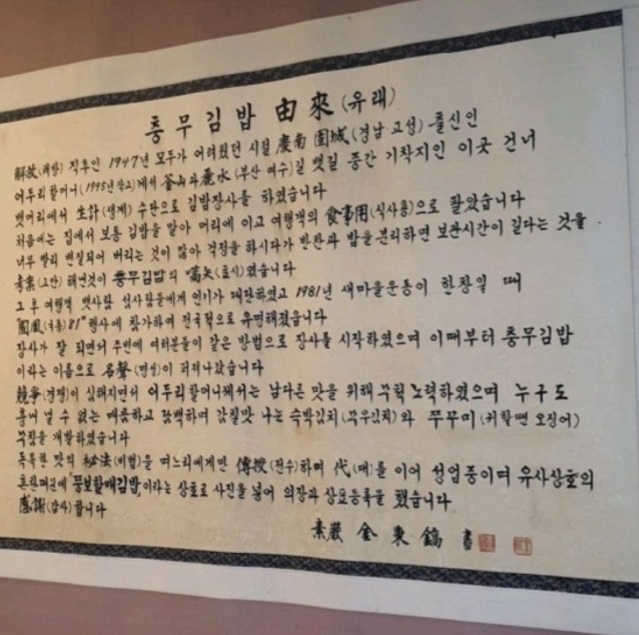 충무김밥 由來(유래)
解放(해방) 직후인 1947년 모두가 어려웠던 시절 慶南 固城(경남 고성) 출신인
어두리할머니(1995년 작고)께서 釜山과 麗水(부산 여수)길 뱃길 중간 기착지인 이곳 건너
뱃머리에서 生計(생계) 수단으로 김밥장사를 하였습니다
처음에는 집에서 보통 김밥을 말아 머리에 이고 여행객의 食事用(식사용)으로 팔았습니다
너무 빨리 변질되어 버리는 것이 많아 걱정을 하시다가 반찬과 밥을 분리하면 보관시간이 길다는 것을
考案(고안)해낸것이 충무김밥의 嚆矢(효시)였습니다
그 후 여행객 뱃사람 섬사람들에게 인기가 대단하였고 1981년 새마을운동이 한창일 때
"國風(국풍)81" 행사에 참가하여 전국적으로 유명해졌습니다
장사가 잘 되면서 주변에 여러분들이 같은 방법으로 장사를 시작하였으며 이때부터 충무김밥
이라는 이름으로 名聲(명성)이 퍼져나갔습니다
競爭(경쟁)이 심해지면서 어두리할머니께서는 남다른 맛을 위해 무척 노력하였으며 누구도
흉내 낼 수 없는 매콤하고 담백하며 감칠맛 나는 슥박김치(무우김치)와 쭈꾸미(귀할땐 오징어)
무침을 개발하였습니다
독특한 맛의 秘法(비법)을 며느리에게만 傳授(전수)하며 代(대)를 이어 성업중이며 유사상호의
혼란때문에 "풍보할매김밥"이라는 상호로 사진을 넣어 의장과 상표등록을 했습니다
感謝(감사)합니다
素巖 金東鎬 書